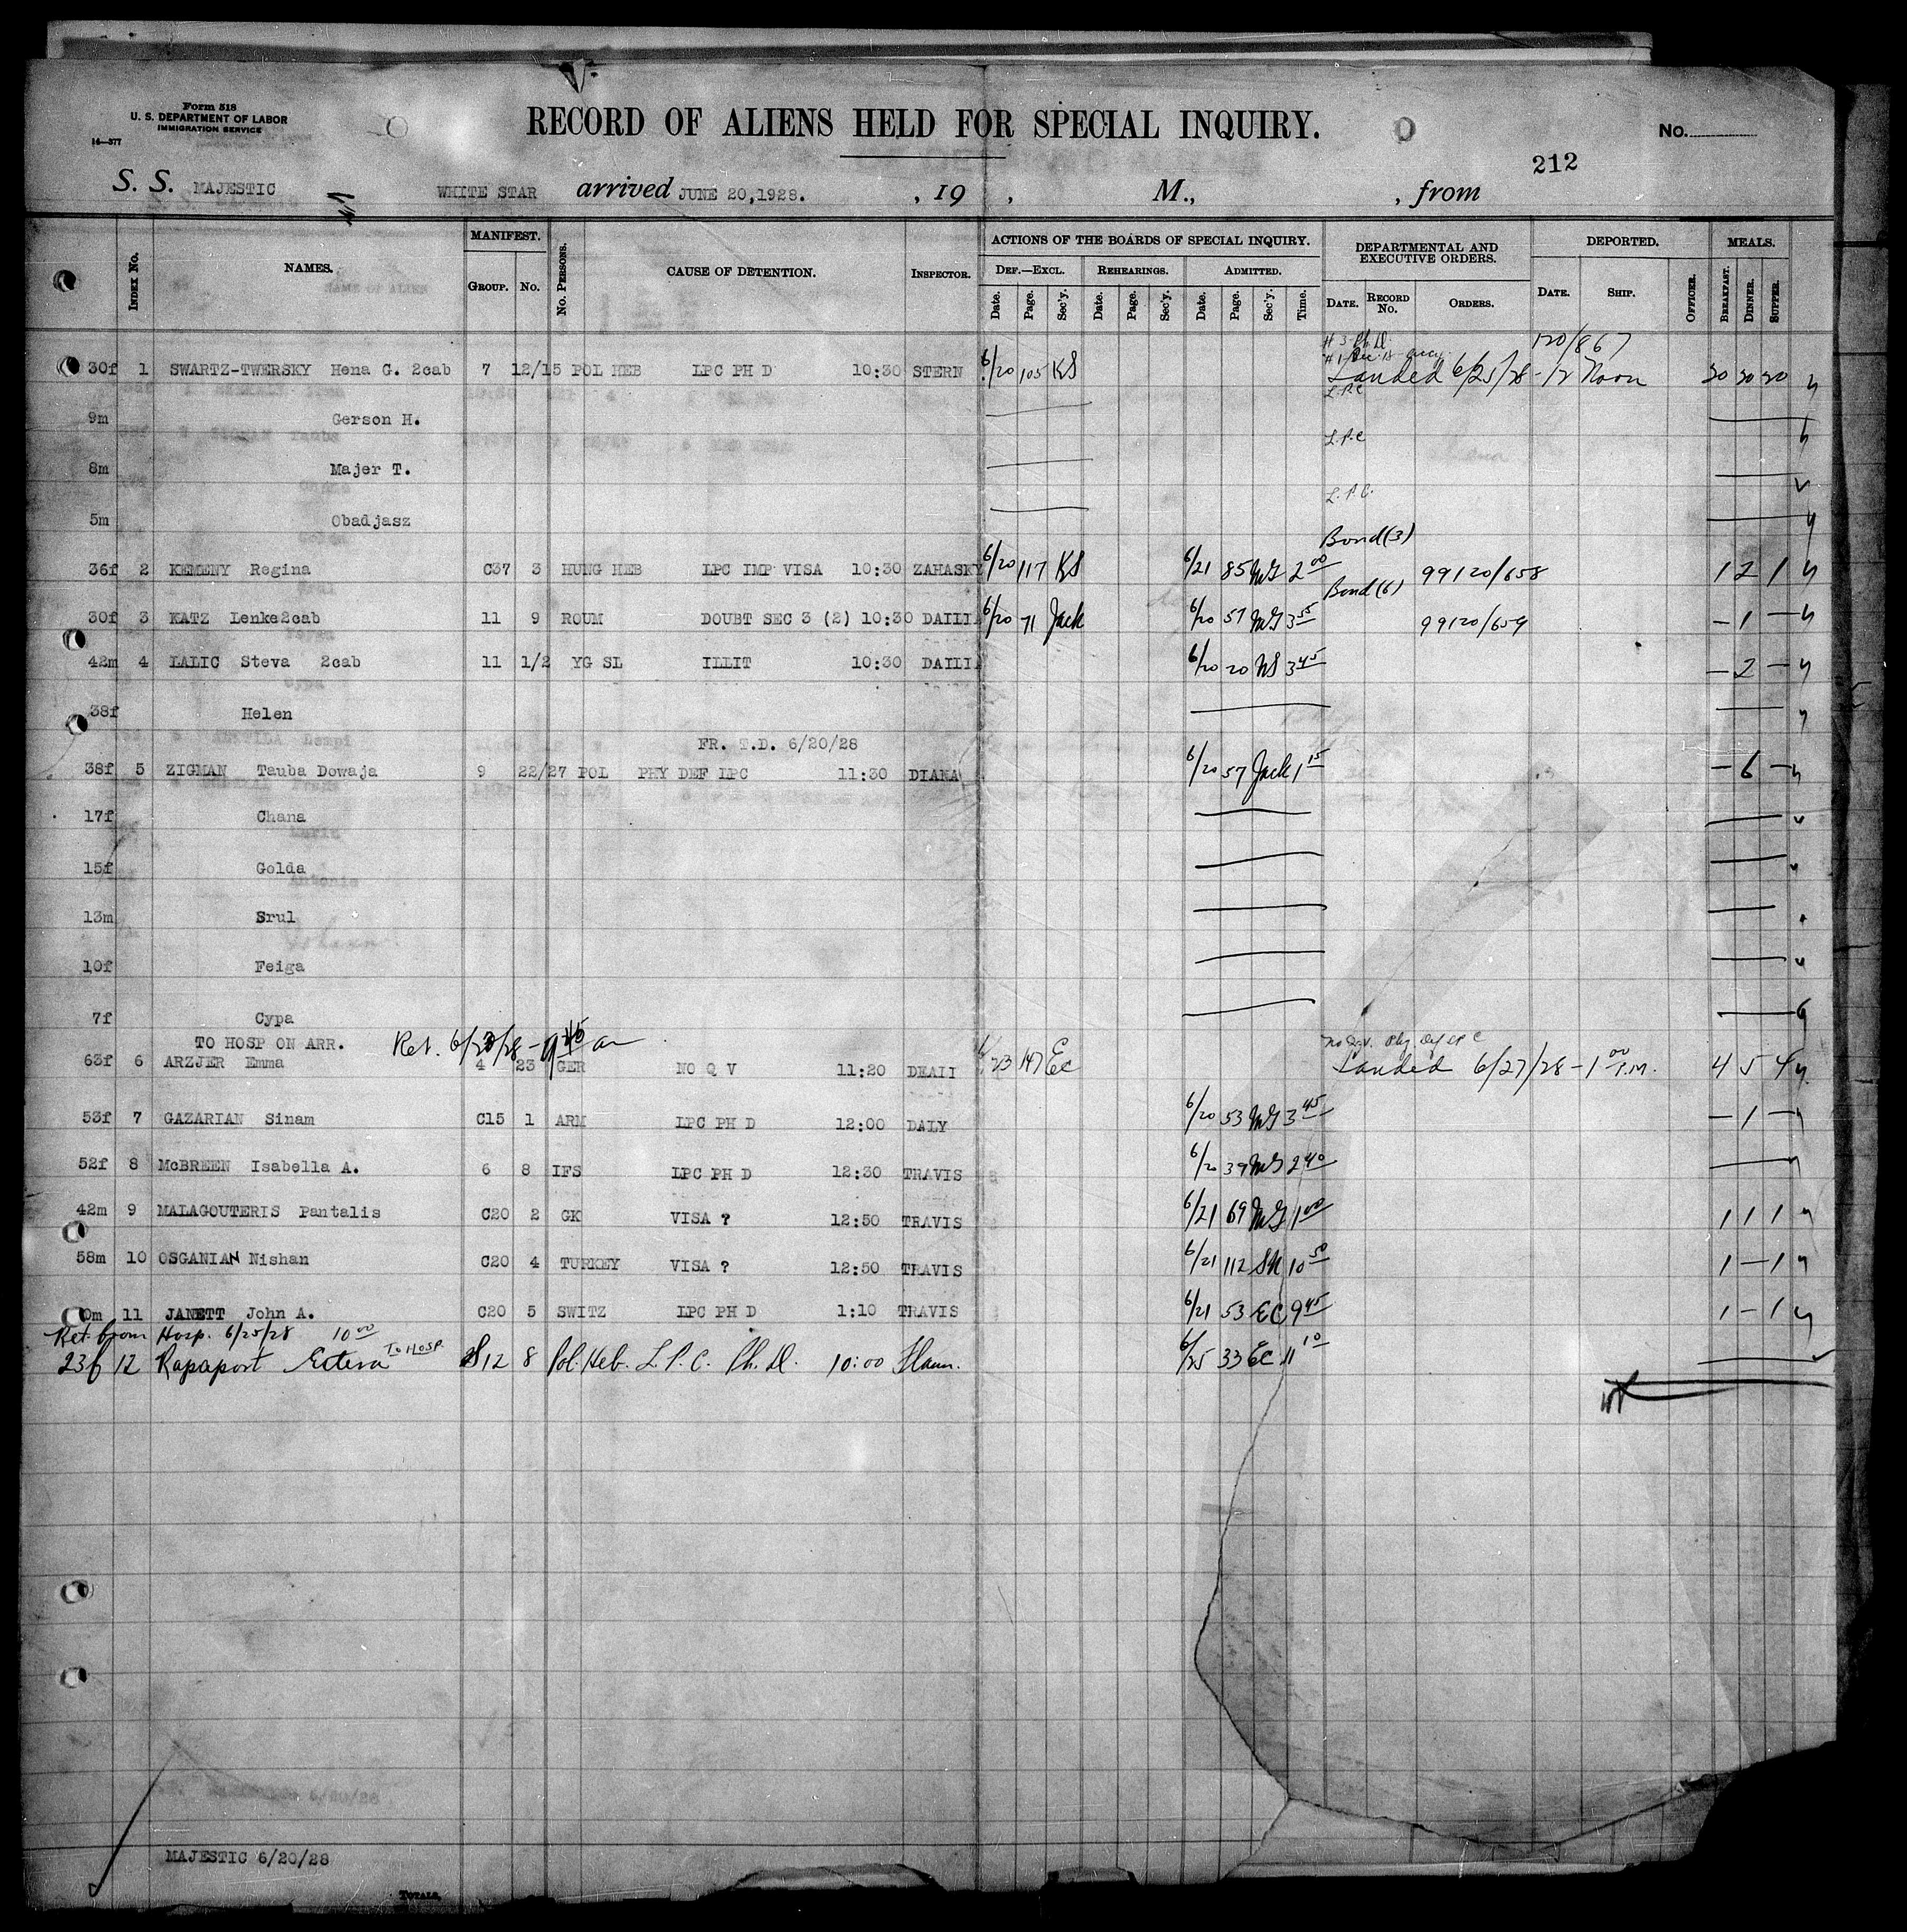 Form 518
U. S. DEPARTMENT OF LABOR
IMMIGRATION SERVICE
14—577
RECORD OF ALIENS HELD FOR SPECIAL INQUIRY.
No.
212
S. S. MAJESTIC WHITE STAR arrived JUNE 20,1928. , 19 , M., , from
Index No. NAMES. MANIFEST. GROUP. No. No. PERSONS. CAUSE OF DETENTION. INSPECTOR. ACTIONS OF THE BOARDS OF SPECIAL INQUIRY. DEF.—EXCL. REHEARINGS. ADMITTED. DEPARTMENTAL AND EXECUTIVE ORDERS. DEPORTED. MEALS.
Date. Page. Sec'y. Date. Page. Sec'y. Date. Page. Sec'y. Time. DATE. RECORD No. ORDERS. DATE. SHIP. OFFICER. BREAKFAST. DINNER. SUPPER.
#3 Ph. D. 120/867
30f 1 SWARTZ-TWERSKY Hena G. 2cab 7 12/15 POL HEB LPC PH D 10:30 STERN 6/20 105 KS Landed 6/25/28 - 12 Noon 20 20 20
L.P.C
9m Gerson H.
L.P.C
8m Majer T.
L.P.C.
5m Obadjasz
Bond (3)
36f 2 KEMENY Regina C37 3 HUNG HEB LPC IMP VISA 10:30 ZAHASKY 6/20 117 KS 6/21 85 MG 2 00 99120/658 1 2 1
Bond (6)
30f 3 KATZ Lenke2cab 11 9 ROUM DOUBT SEC 3 (2) 10:30 DAILI 6/20 71 Jack 6/20 57 MG 3 55 99120/659 – 1 –
42m 4 LALIC Steva 2cab 11 1/2 YG SL ILLIT 10:30 DAILI 6/20 20 NS 3 45 – 2 –
38f Helen
FR. T.D. 6/20/28
38f 5 ZIGMAN Tauba Dowaja 9 22/27 POL PHY DEF LPC 11:30 DIANA 6/20 57 Jack 1 15 – 6 –
17f Chana
15f Golda
13m Srul
10f Feiga
7f Cypa
TO HOSP ON ARR. Ret. 6/23/28 - 9 45 am
63f 6 ARZJER Emma 4 23 GER NO Q V 11:20 DEAII 6/23 147 EC Landed 6/27/28 - 1 00 P.M. 4 5 4
53f 7 GAZARIAN Sinam C15 1 ARM LPC PH D 12:00 DALY 6/20 53 MG 3 45 – 1 –
52f 8 McBREEN Isabella A. 6 8 IFS LPC PH D 12:30 TRAVIS 6/20 39 MG 2 40
42m 9 MALAGOUTERIS Pantalis C20 2 GK VISA ? 12:50 TRAVIS 6/21 69 MG 1 00 1 1 1
58m 10 OSGANIAN Nishan C20 4 TURKEY VISA ? 12:50 TRAVIS 6/21 112 SK 10 50 1 – 1
0m 11 JANETT John A. C20 5 SWITZ LPC PH D 1:10 TRAVIS 6/21 53 EC 9 45 1 – 1
Ret. from Hosp. 6/25/28 10 00
23f 12 Rapaport Estera To HOSP. 12 8 Pol. Heb. L. P. C. Ph. D. 10:00 6/25 33 EC 11 10
MAJESTIC 6/20/28
TOTALS,